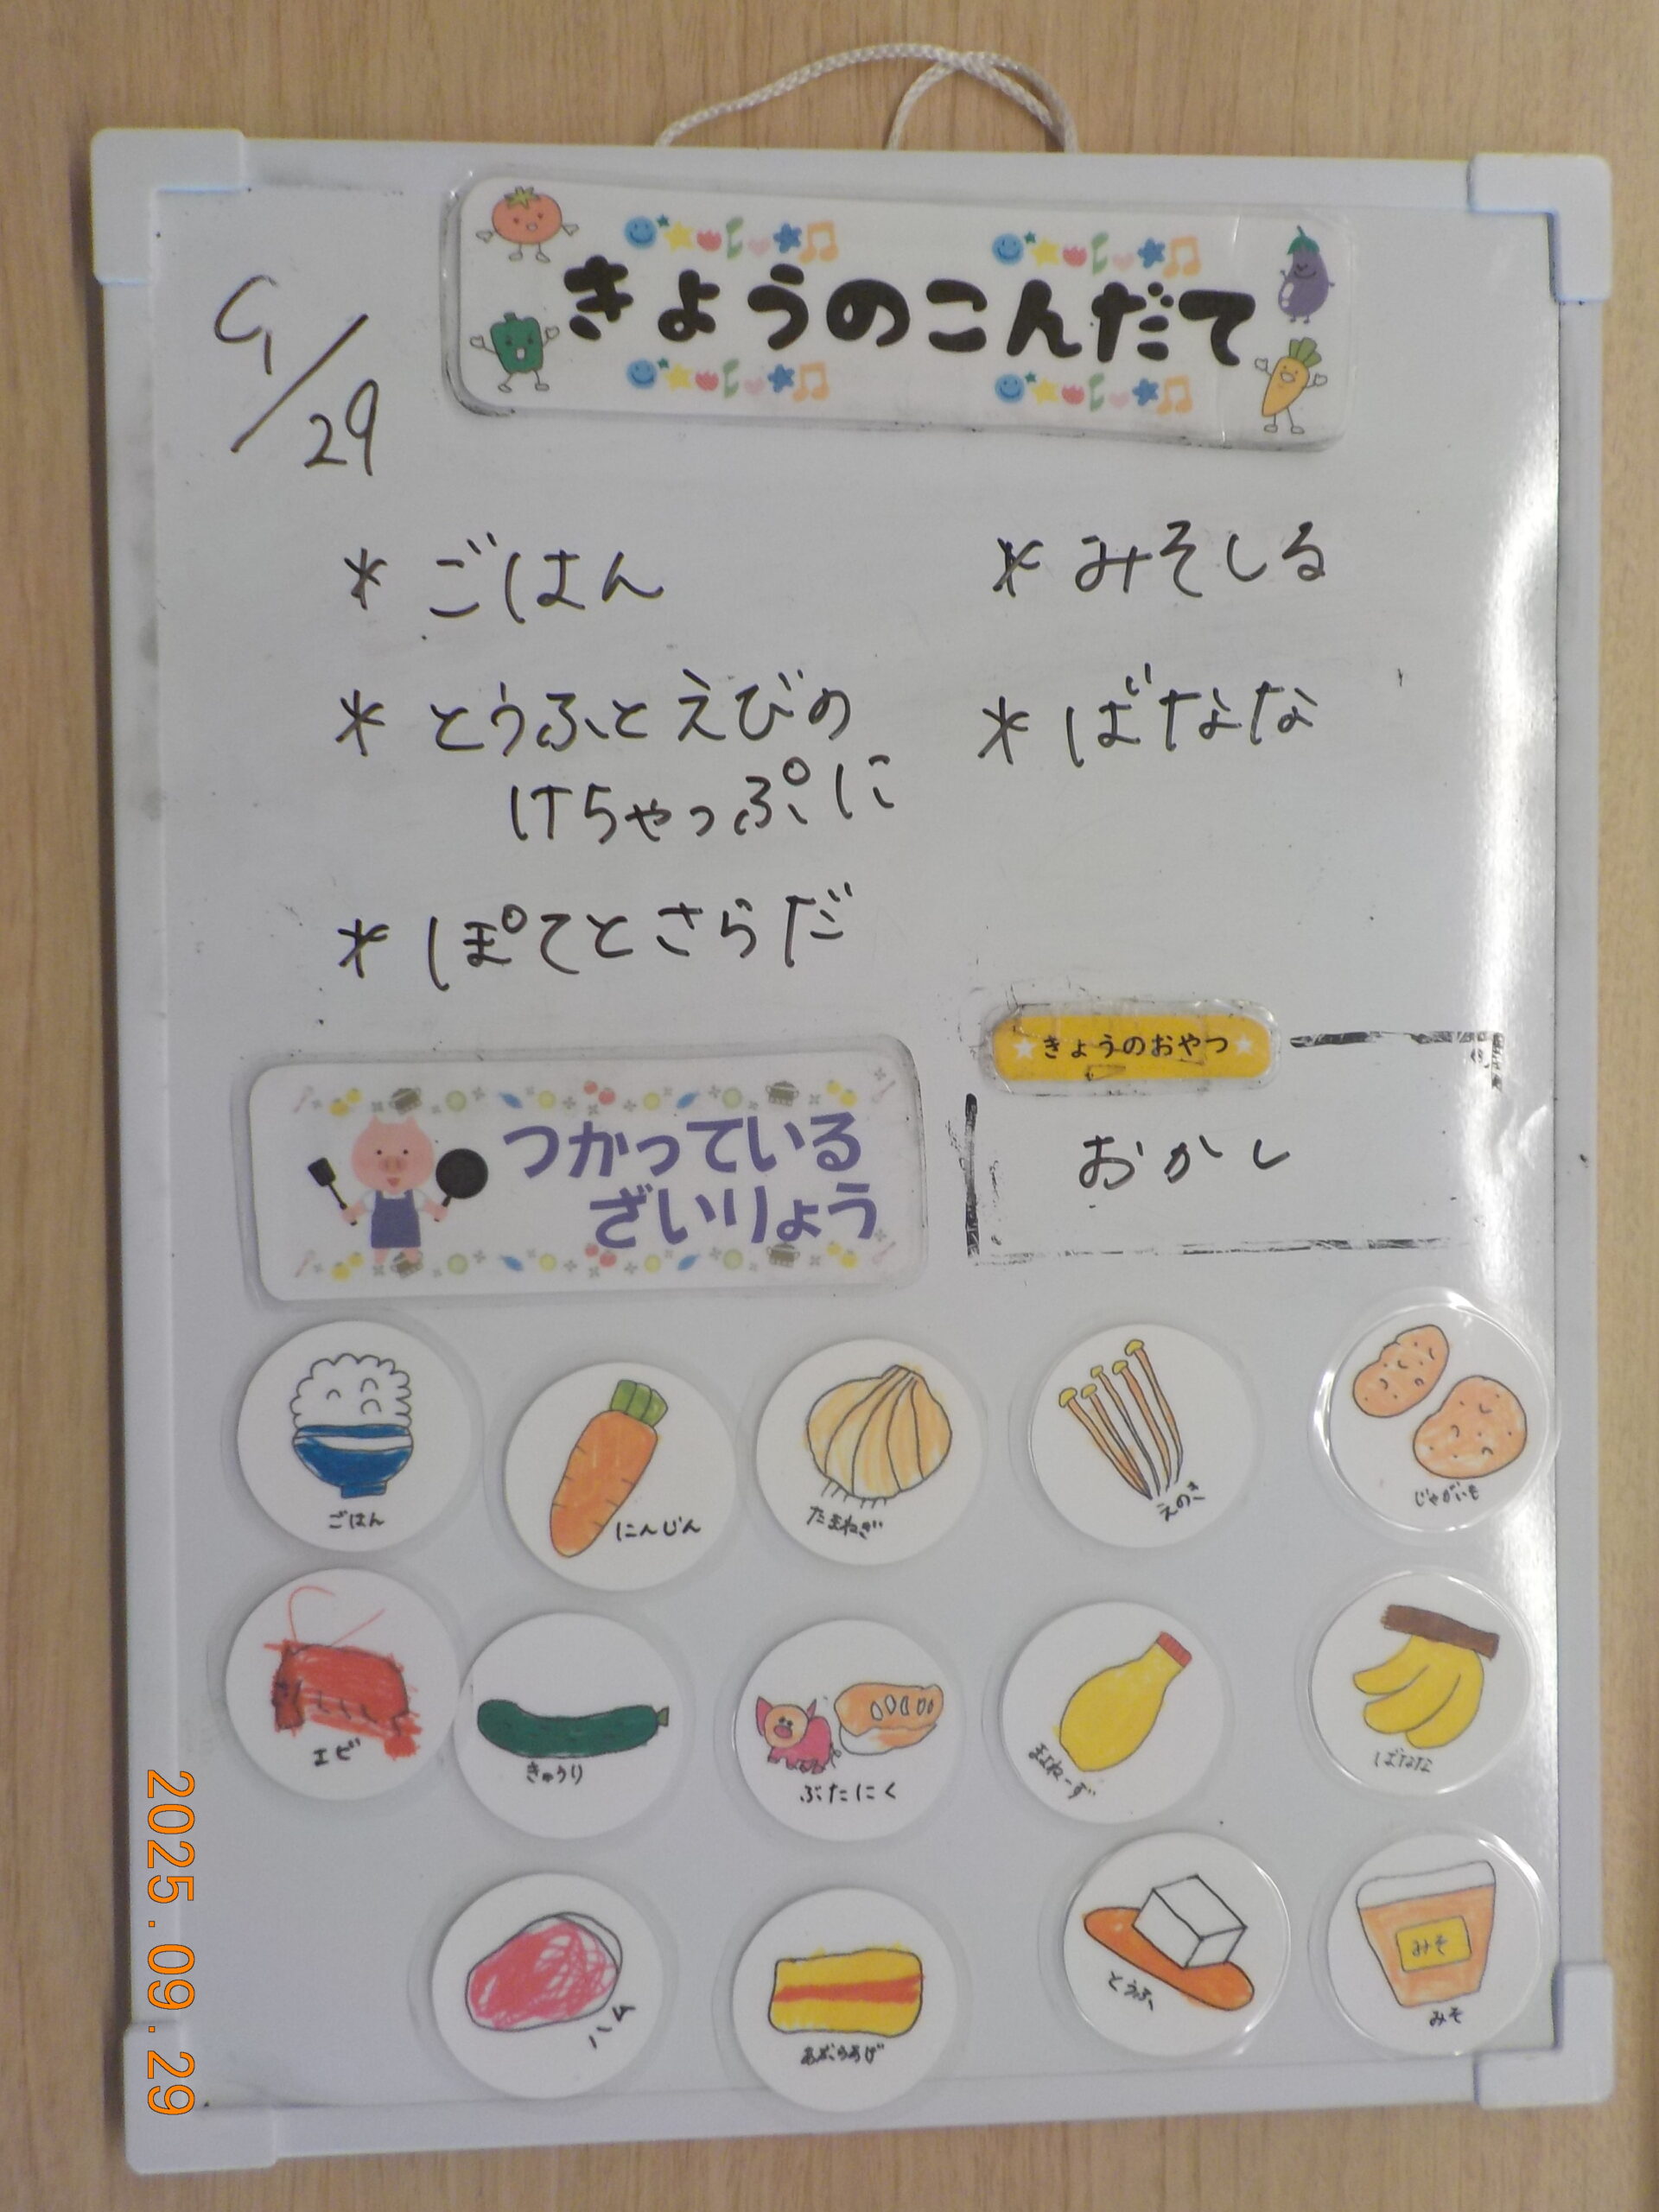 きょうのこんだて
9/29
* ごはん
* とうふとえびの
けちゃっぷに
* ぽてとさらだ
* みそしる
* ばなな
きょうのおやつ
おかし
つかっている
ざいりょう
ごはん
にんじん
たまねぎ
えのき
じゃがいも
エビ
きゅうり
ぶたにく
まよねーず
ばなな
ハム
あぶらあげ
とうふ
みそ
みそ
2025.09.29